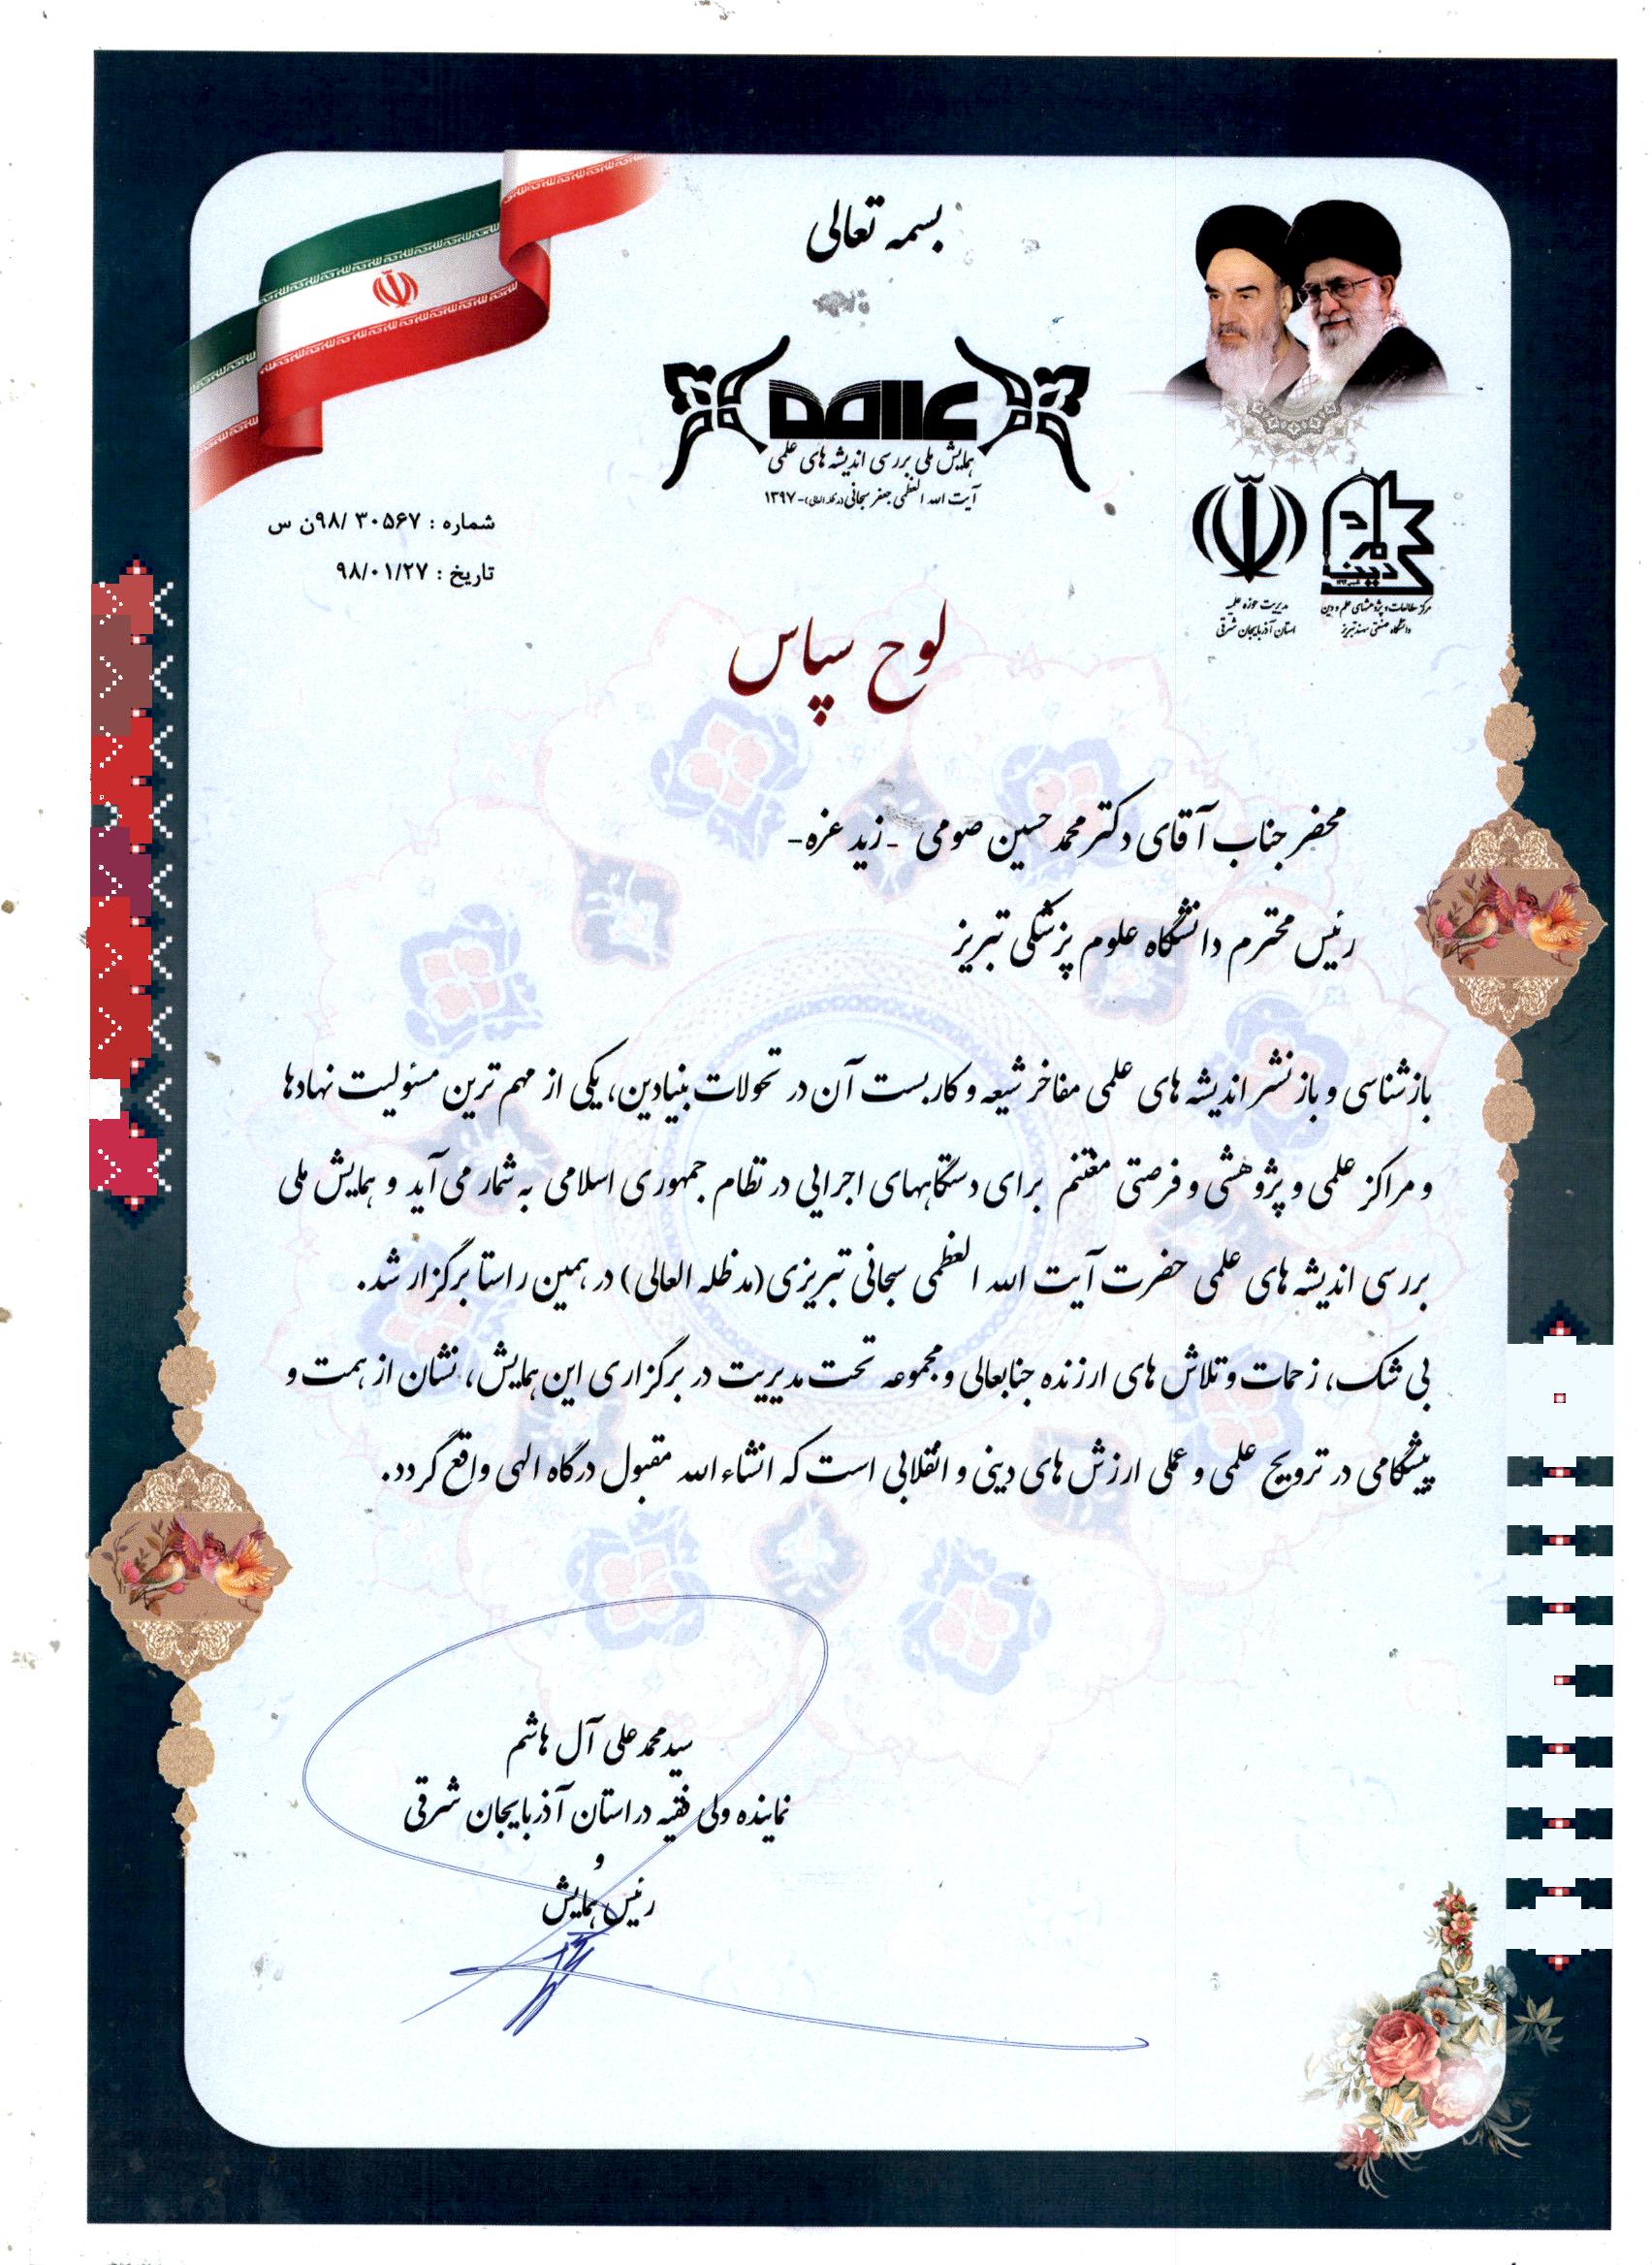 بسمه تعالی
علامه
همایش ملی بررسی اندیشه های علمی
آیت الله العظمی جعفر سبحانی (مدظله العالی) - ۱۳۹۷
شماره : ۳۰۵۶۷ /۹۸ن س
تاریخ : ۹۸/۰۱/۲۷
مرکز مطالعات و پژوهشهای علم و دین
دانشگاه صنعتی سهند تبریز
مدیریت حوزه علمیه
استان آذربایجان شرقی
لوح سپاس
محضر جناب آقای دکتر محمد حسین صومی -زید عزه-
رئیس محترم دانشگاه علوم پزشکی تبریز
بازشناسی و بازنشر اندیشه های علمی مفاخر شیعه و کاربست آن در تحولات بنیادین، یکی از مهم ترین مسئولیت نهادها
و مراکز علمی و پژوهشی و فرصتی مغتنم برای دستگاههای اجرایی در نظام جمهوری اسلامی به شمار می آید و همایش ملی
بررسی اندیشه های علمی حضرت آیت الله العظمی سبحانی تبریزی (مدظله العالی) در همین راستا برگزار شد.
بی شک، زحمات و تلاش های ارزنده جنابعالی و مجموعه تحت مدیریت در برگزاری این همایش، نشان از همت و
پیشگامی در ترویج علمی و عملی ارزش های دینی و انقلابی است که انشاءالله مقبول درگاه الهی واقع گردد.
سید محمد علی آل هاشم
نماینده ولی فقیه در استان آذربایجان شرقی
و
رئیس همایش